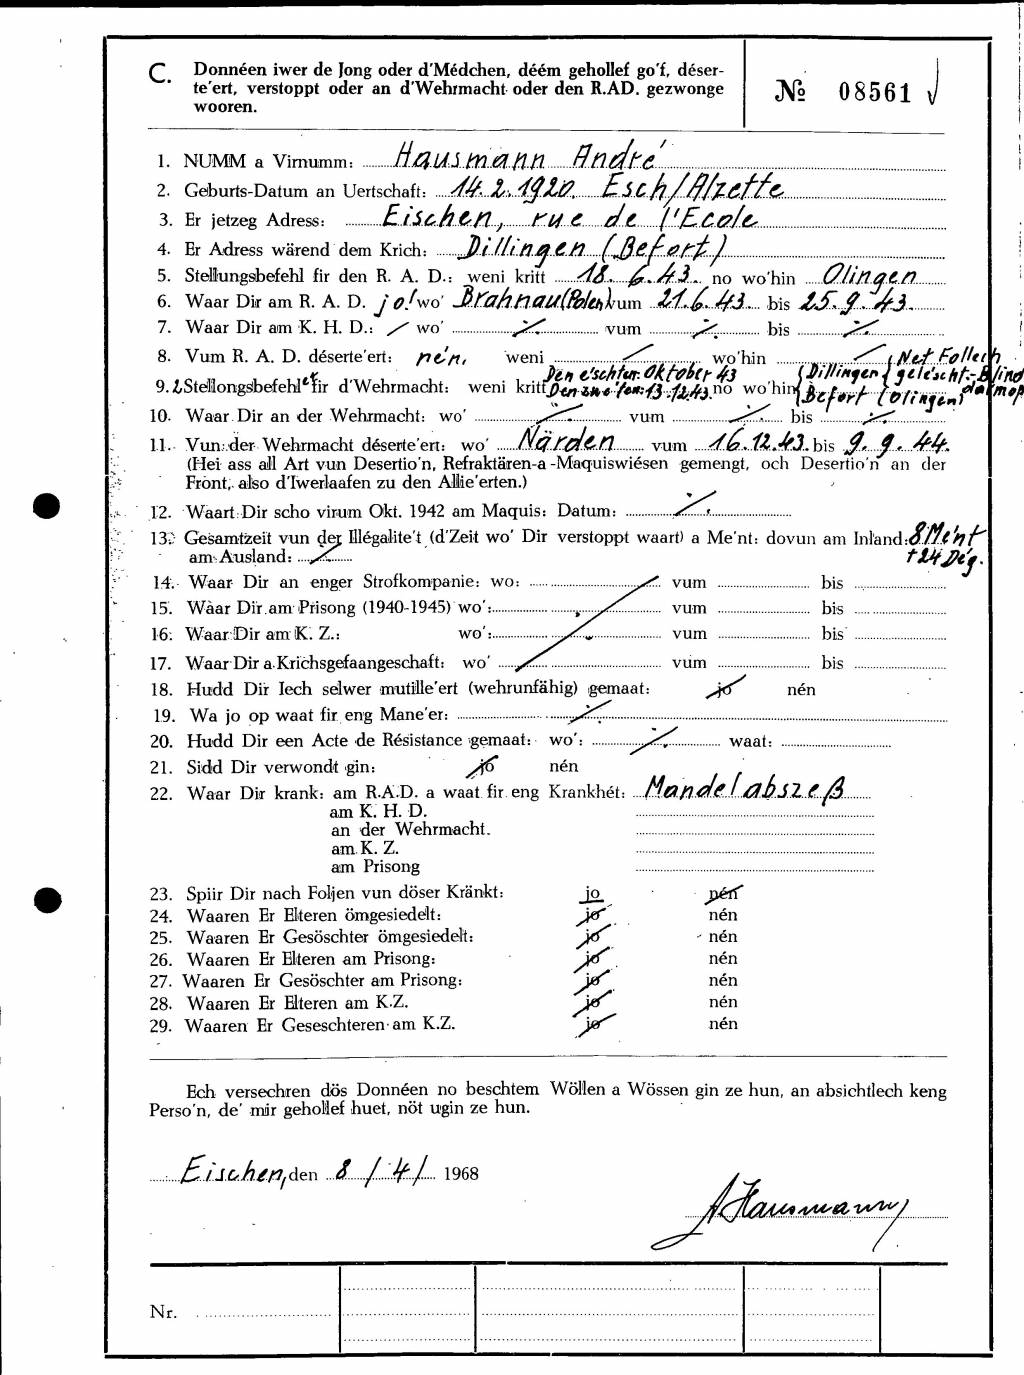 C. Donnéen iwer de Jong oder d'Médchen, déém gehollef go'f, déser-
te'ert, verstoppt oder an d'Wehrmacht oder den R.AD. gezwonge
wooren.
№ 08561
1. NUMM a Virnumm: Hausmann André
2. Geburts-Datum an Uertschaft: 14.2.1920. Esch/Alzette
3. Er jetzeg Adress: Eischen, rue de l'Ecole
4. Er Adress wärend dem Krich: Dillingen (Befort)
5. Stellungsbefehl fir den R. A. D.: weni kritt 18. 6. 43. no wo'hin Olingen
6. Waar Dir am R. A. D. jo! wo' Brahnau (Polen) vum 21.6.43 bis 25.9.43.
7. Waar Dir am K. H. D.: / wo' ./. vum ./. bis ./.
8. Vum R. A. D. déserte'ert: nén. weni / wo'hin / (Net Follech
Den e'schten: Oktober 43 (Dillingen (geléscht.-Blind
9. 2 Stellongsbefehler fir d'Wehrmacht: weni kritt Den zwe'ten: 13.12.43. no wo'hin Befort (Olingen) darmop
10. Waar Dir an der Wehrmacht: wo' ./. vum ./. bis ./.
11. Vun der Wehrmacht déserte'ert: wo' Närden vum 16.12.43. bis 9.9.44.
(Hei ass all Art vun Desertio'n, Refraktären-a-Maquiswiésen gemengt, och Desertio'n an der
Front, also d'Iwerlaafen zu den Allie'erten.)
12. Waart Dir scho virum Okt. 1942 am Maquis: Datum: ./.
13. Gesamtzeit vun der Illégalite't (d'Zeit wo' Dir verstoppt waart) a Me'nt: dovun am Inland: 8 Me'nt
am Ausland: ./. + 24 Deg.
14. Waar Dir an enger Strofkompanie: wo: vum bis
15. Waar Dir am Prisong (1940-1945) wo': vum bis
16. Waar Dir am K. Z.: wo': vum bis
17. Waar Dir a Krichsgefaangeschaft: wo' vum bis
18. Hudd Dir Iech selwer mutille'ert (wehrunfähig) gemaat: jo nén
19. Wa jo op waat fir eng Mane'er: ./.
20. Hudd Dir een Acte de Résistance gemaat: wo': ./. waat:
21. Sidd Dir verwondt gin: jo nén
22. Waar Dir krank: am R.A.D. a waat fir eng Krankhét: Mandelabszeß
am K. H. D.
an der Wehrmacht.
am K. Z.
am Prisong
23. Spiir Dir nach Foljen vun döser Kränkt: jo nén
24. Waaren Er Elteren ömgesiedelt: jo nén
25. Waaren Er Gesöschter ömgesiedelt: jo nén
26. Waaren Er Elteren am Prisong: jo nén
27. Waaren Er Gesöschter am Prisong: jo nén
28. Waaren Er Elteren am K.Z. jo nén
29. Waaren Er Geseschteren am K.Z. jo nén
Ech versechren dös Donnéen no beschtem Wöllen a Wössen gin ze hun, an absichtlech keng
Perso'n, de' mir gehollef huet, nöt ugin ze hun.
Eischen, den 8/4/ 1968
A Hausmann
Nr.